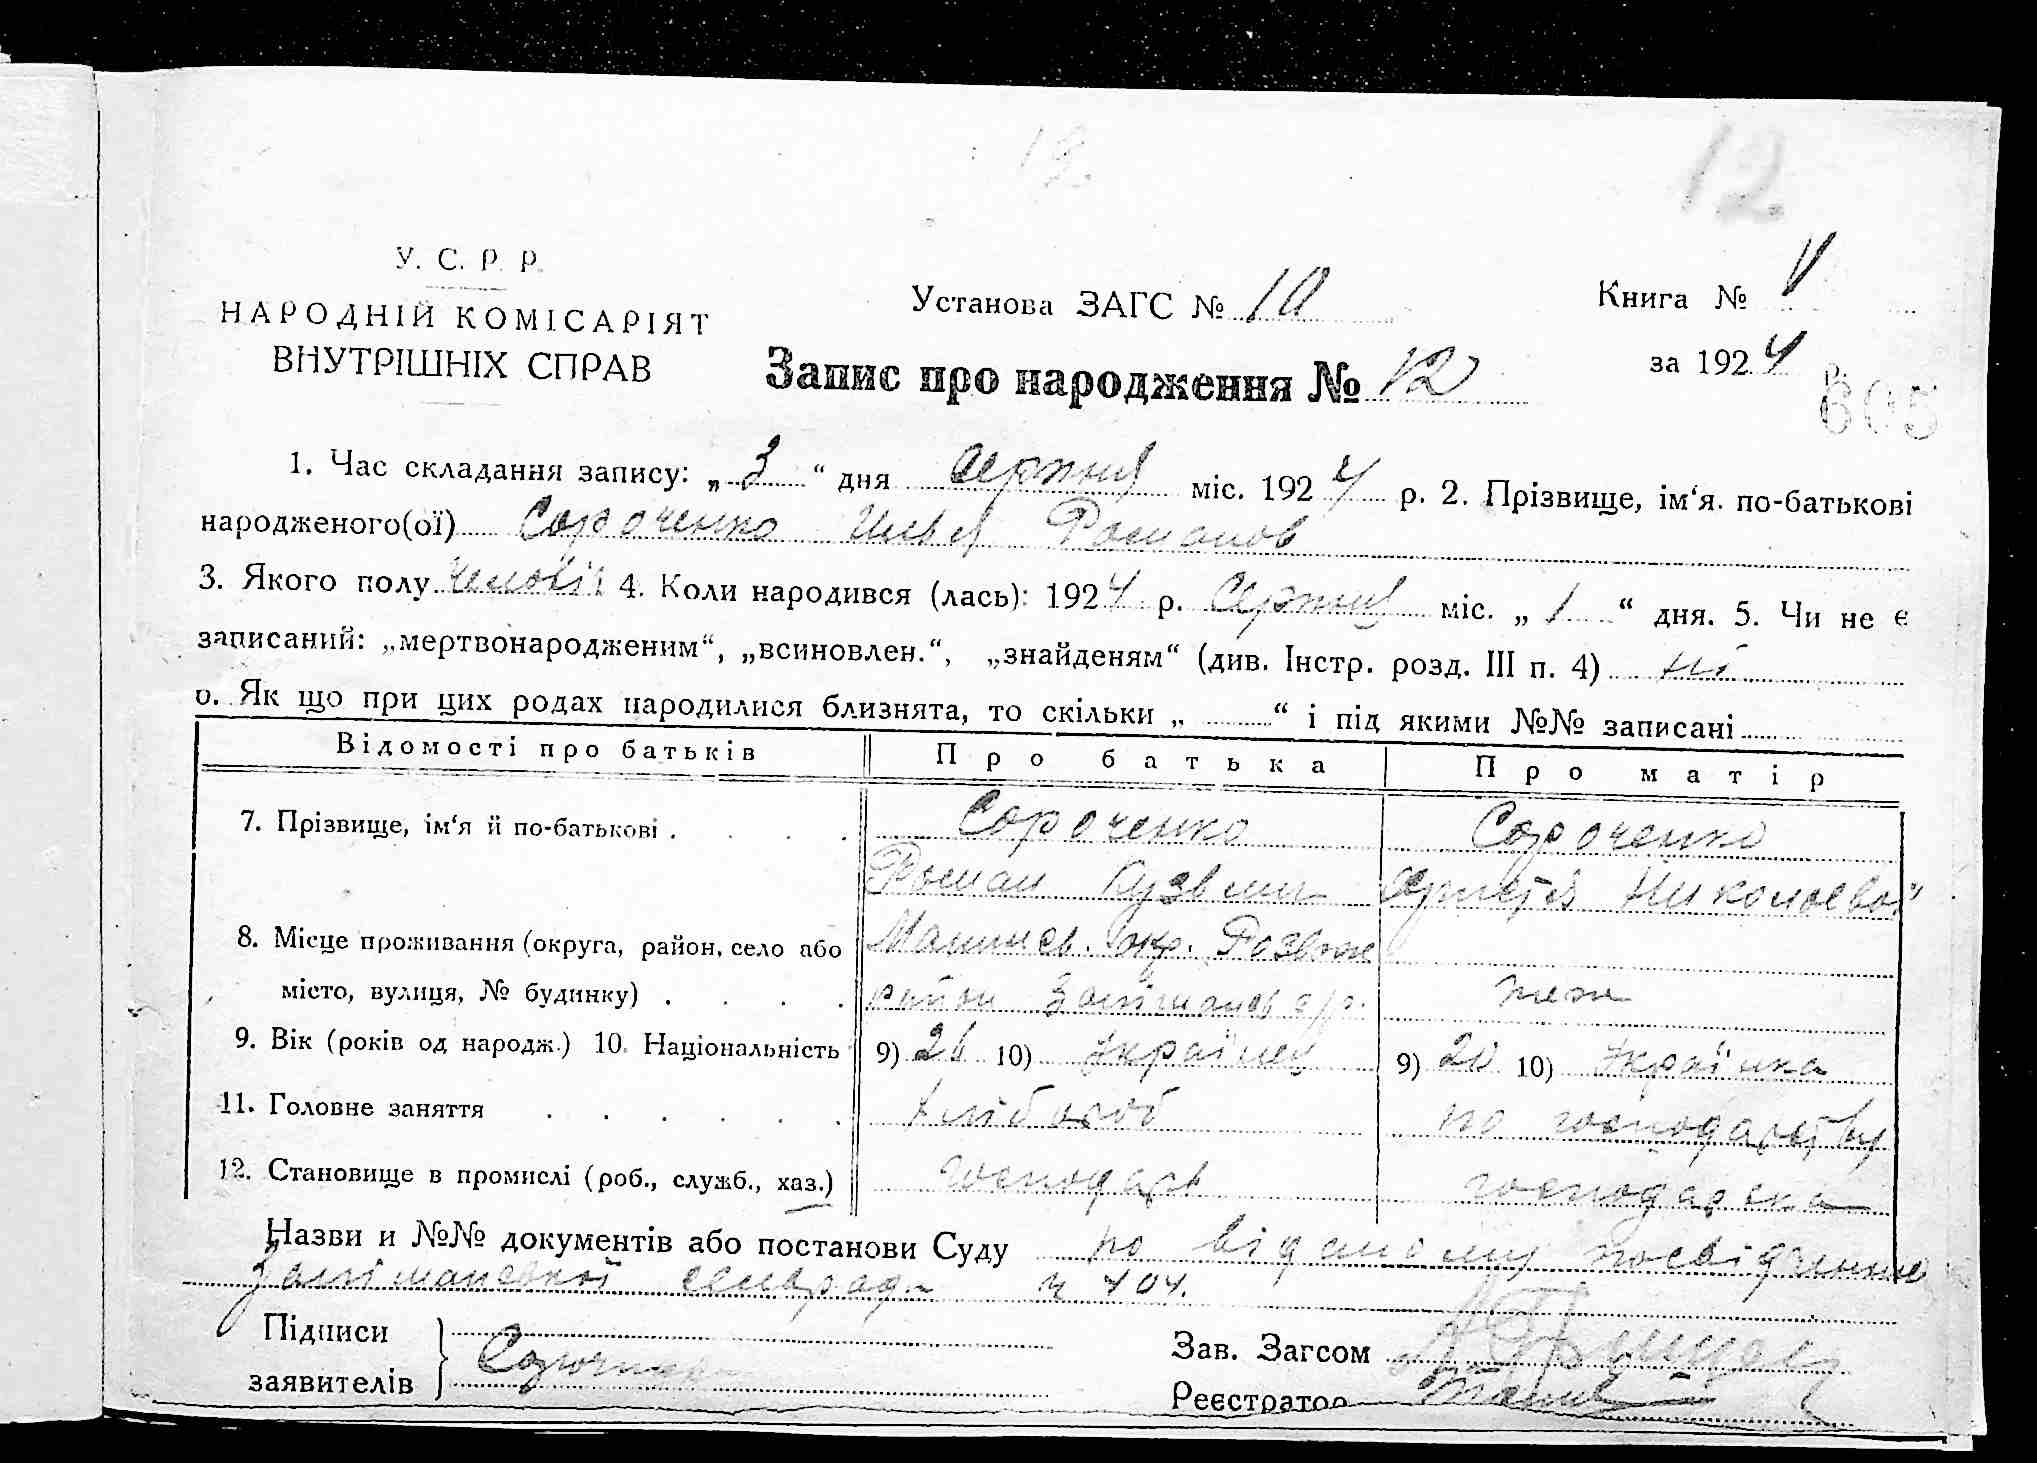 12
У. С. Р. Р.
НАРОДНІЙ КОМІСАРІЯТ
ВНУТРІШНІХ СПРАВ
Установа ЗАГС № 10
Книга № V
за 1924 р.
Запис про народження № 12
605
1. Час складання запису: „3“ дня Серпня міс. 1924 р. 2. Прізвище, ім‘я. по-батькові
народженого(ої) Сороченко Илья Романов
3. Якого полу 4. Коли народився (лась): 1924 р. Серпня міс. „1“ дня. 5. Чи не є
записаний: „мертвонародженим“, „всиновлен.“, „знайденям“ (див. Інстр. розд. III п. 4) ні
6. Як що при цих родах народилися близнята, то скільки „ “ і під якими №№ записані
Відомості про батьків Про батька Про матір
7. Прізвище, ім‘я й по-батькові Сороченко Сороченко
Роман Кузьмич Николаевой
8. Місце проживання (округа, район, село або
місто, вулиця, № будинку) район теж
9. Вік (років од народж.) 10. Національність 9) 26 10) Українец 9) 20 10) Українка
11. Головне заняття Хлібороб по господарству
12. Становище в промислі (роб., служб., хаз.) господарь господарка
Назви и №№ документів або постанови Суду по посвідченню
сільрад № 404.
Підписи
заявителів
Зав. Загсом
Реєстратор